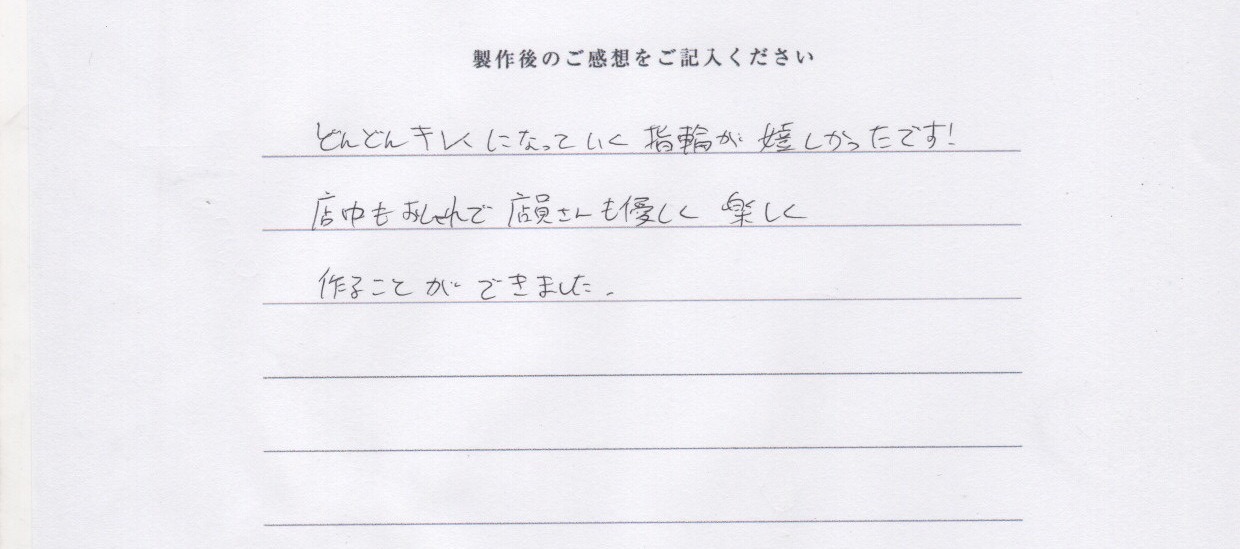 製作後のご感想をご記入ください
どんどんキレイになっていく指輪が嬉しかったです!
店内もおしゃれで店員さんも優しく楽しく
作ることができました。